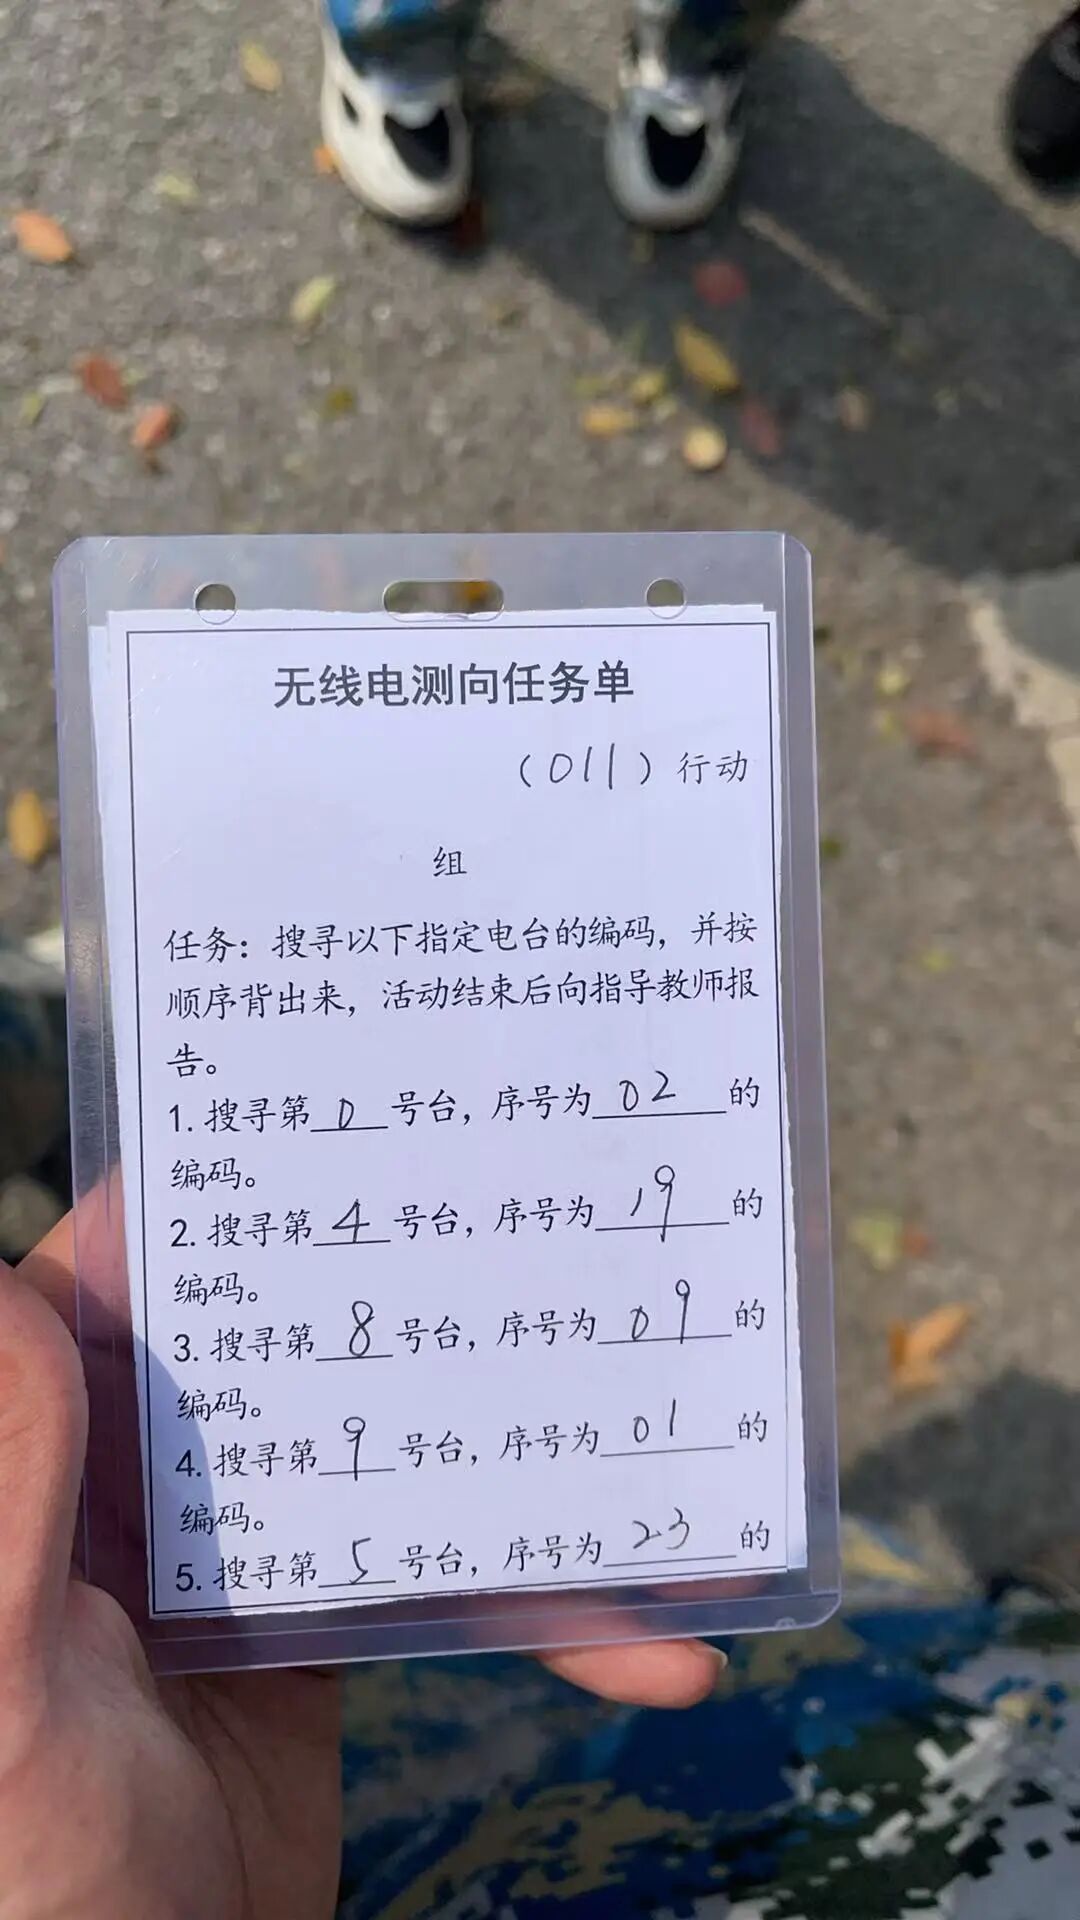 无线电测向任务单
(011)行动
组
任务：搜寻以下指定电台的编码，并按
顺序背出来，活动结束后向指导教师报
告。
1. 搜寻第 0 号台，序号为 02 的
编码。
2. 搜寻第 4 号台，序号为 19 的
编码。
3. 搜寻第 8 号台，序号为 09 的
编码。
4. 搜寻第 9 号台，序号为 01 的
编码。
5. 搜寻第 5 号台，序号为 23 的